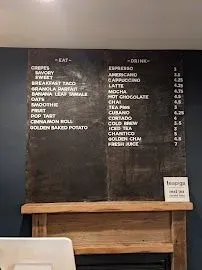 - EAT -
CREPES
SAVORY
SWEET
BREAKFAST TACO
GRANOLA PARFAIT
BANANA LEAF TAMALE
OATS
SMOOTHIE
FRUIT
POP TART
CINNAMON ROLL
GOLDEN BAKED POTATO
- DRINK -
ESPRESSO 3
AMERICANO 3.5
CAPPUCCINO 4.25
LATTE 4.5
MOCHA 4.75
HOT CHOCOLATE 4
CHAI 4.5
TEA PIGS 3
CUBANO 4.25
CORTADO 4
COLD BREW 3.5
ICED TEA 3
CHANTICO 5
GOLDEN CHAI 4.5
FRESH JUICE 7
teapigs